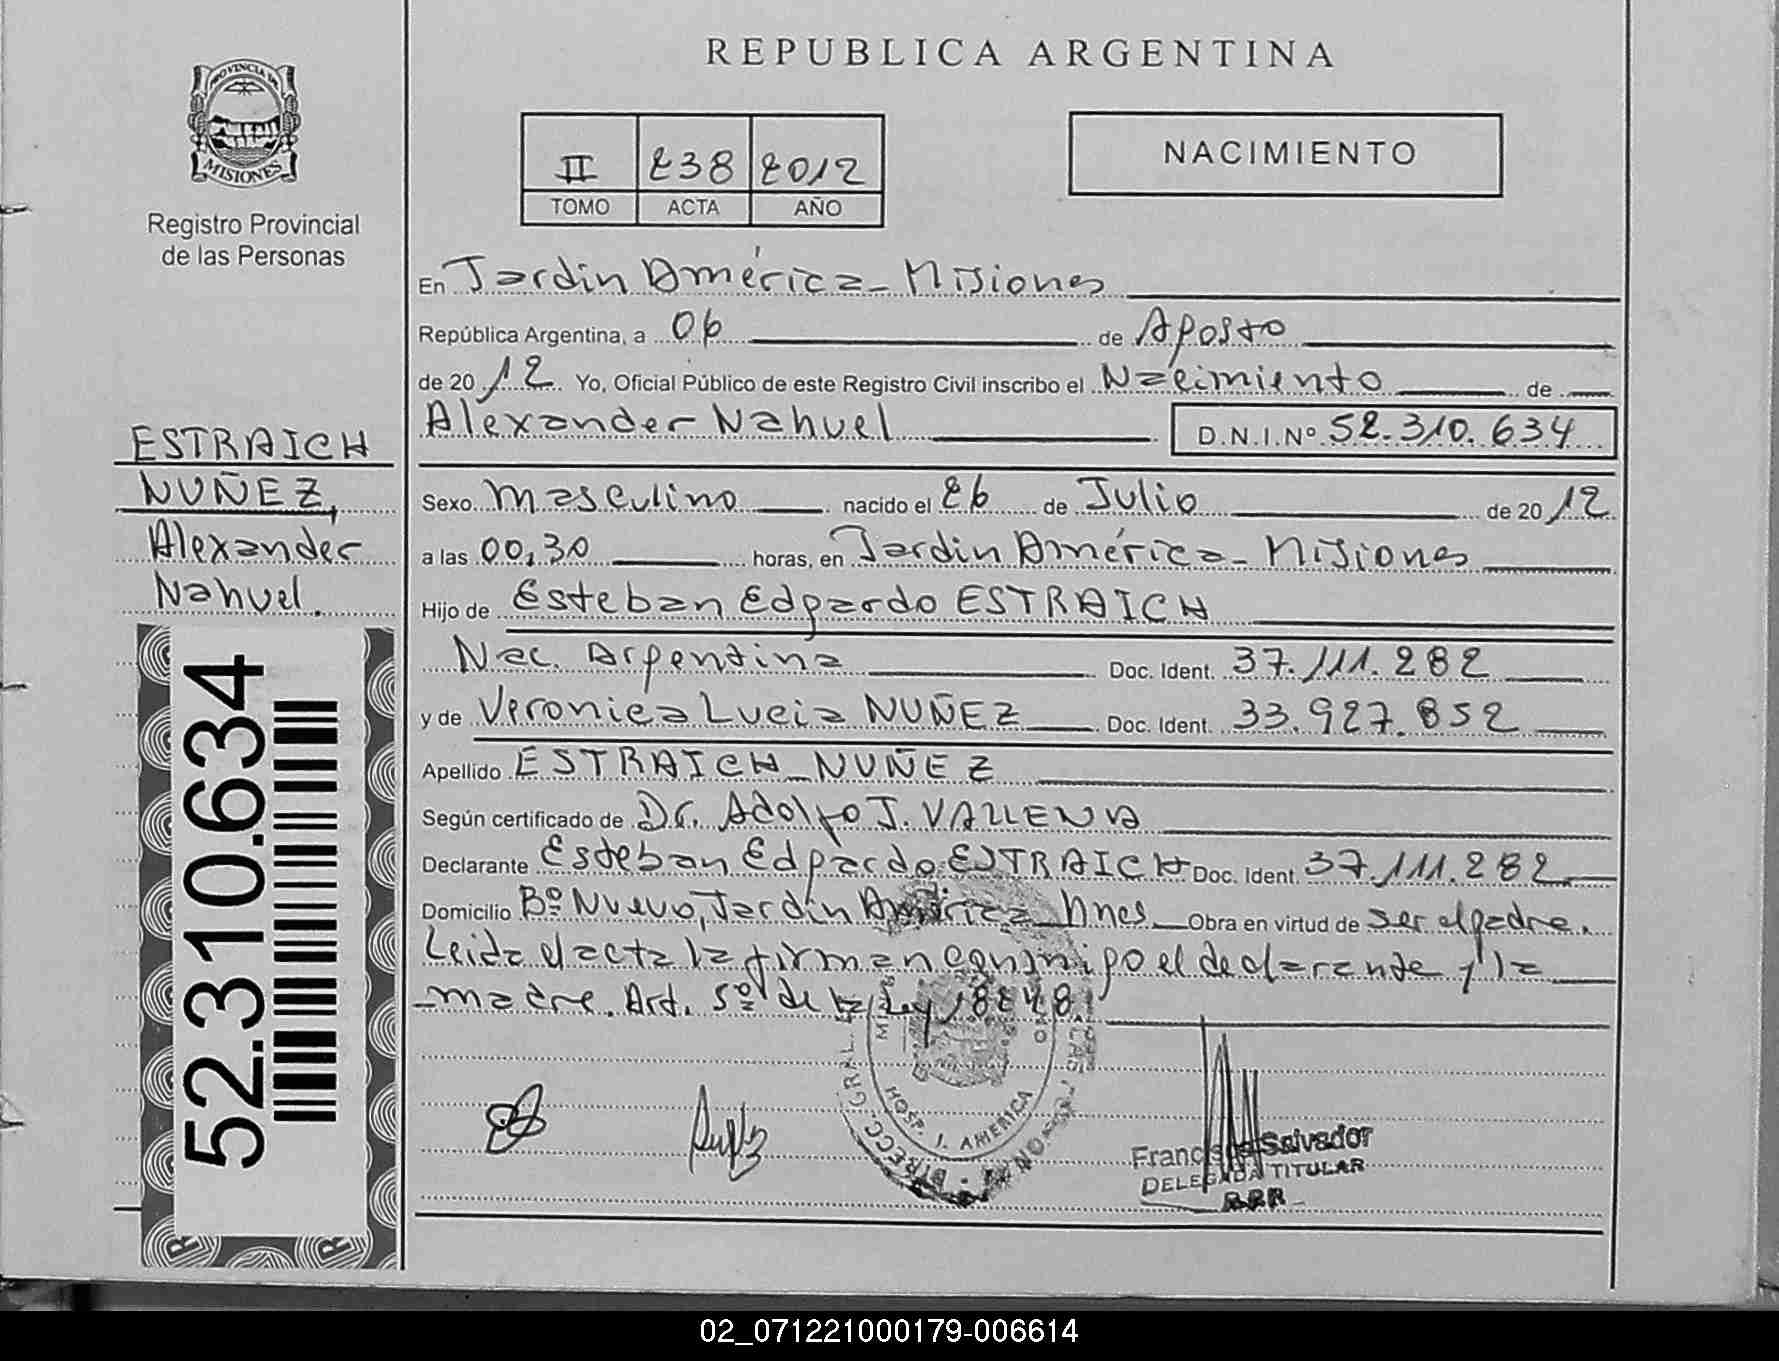 REPUBLICA ARGENTINA
PROVINCIA DE
MISIONES
Registro Provincial
de las Personas
II 238 2012
TOMO ACTA AÑO
NACIMIENTO
En Jardin América - Misiones
República Argentina, a 06 de Agosto
de 2012 Yo, Oficial Público de este Registro Civil inscribo el Nacimiento de
Alexander Nahuel D.N.I.Nº 52.310.634
ESTRAICH
NUÑEZ,
Alexander
Nahuel.
52.310.634
Sexo Masculino nacido el 26 de Julio de 2012
a las 00,30 horas, en Jardin América - Misiones
Hijo de Esteban Edgardo ESTRAICH
Nac. Argentina Doc. Ident. 37.111.282
y de Veronica Lucia NUÑEZ Doc. Ident. 33.927.852
Apellido ESTRAICH NUÑEZ
Según certificado de Dr. Adolfo J.
Declarante Esteban Edgardo ESTRAICH Doc. Ident. 37.111.282
Domicilio Bº Nuevo, Jardin América Mnes. Obra en virtud de ser el padre.
Leida el acta la firman conmigo el declarante y la
madre. Art. 5º de la Ley 18248.
HOSP. J. AMERICA
Salvador
DELEGADA TITULAR
02_071221000179-006614